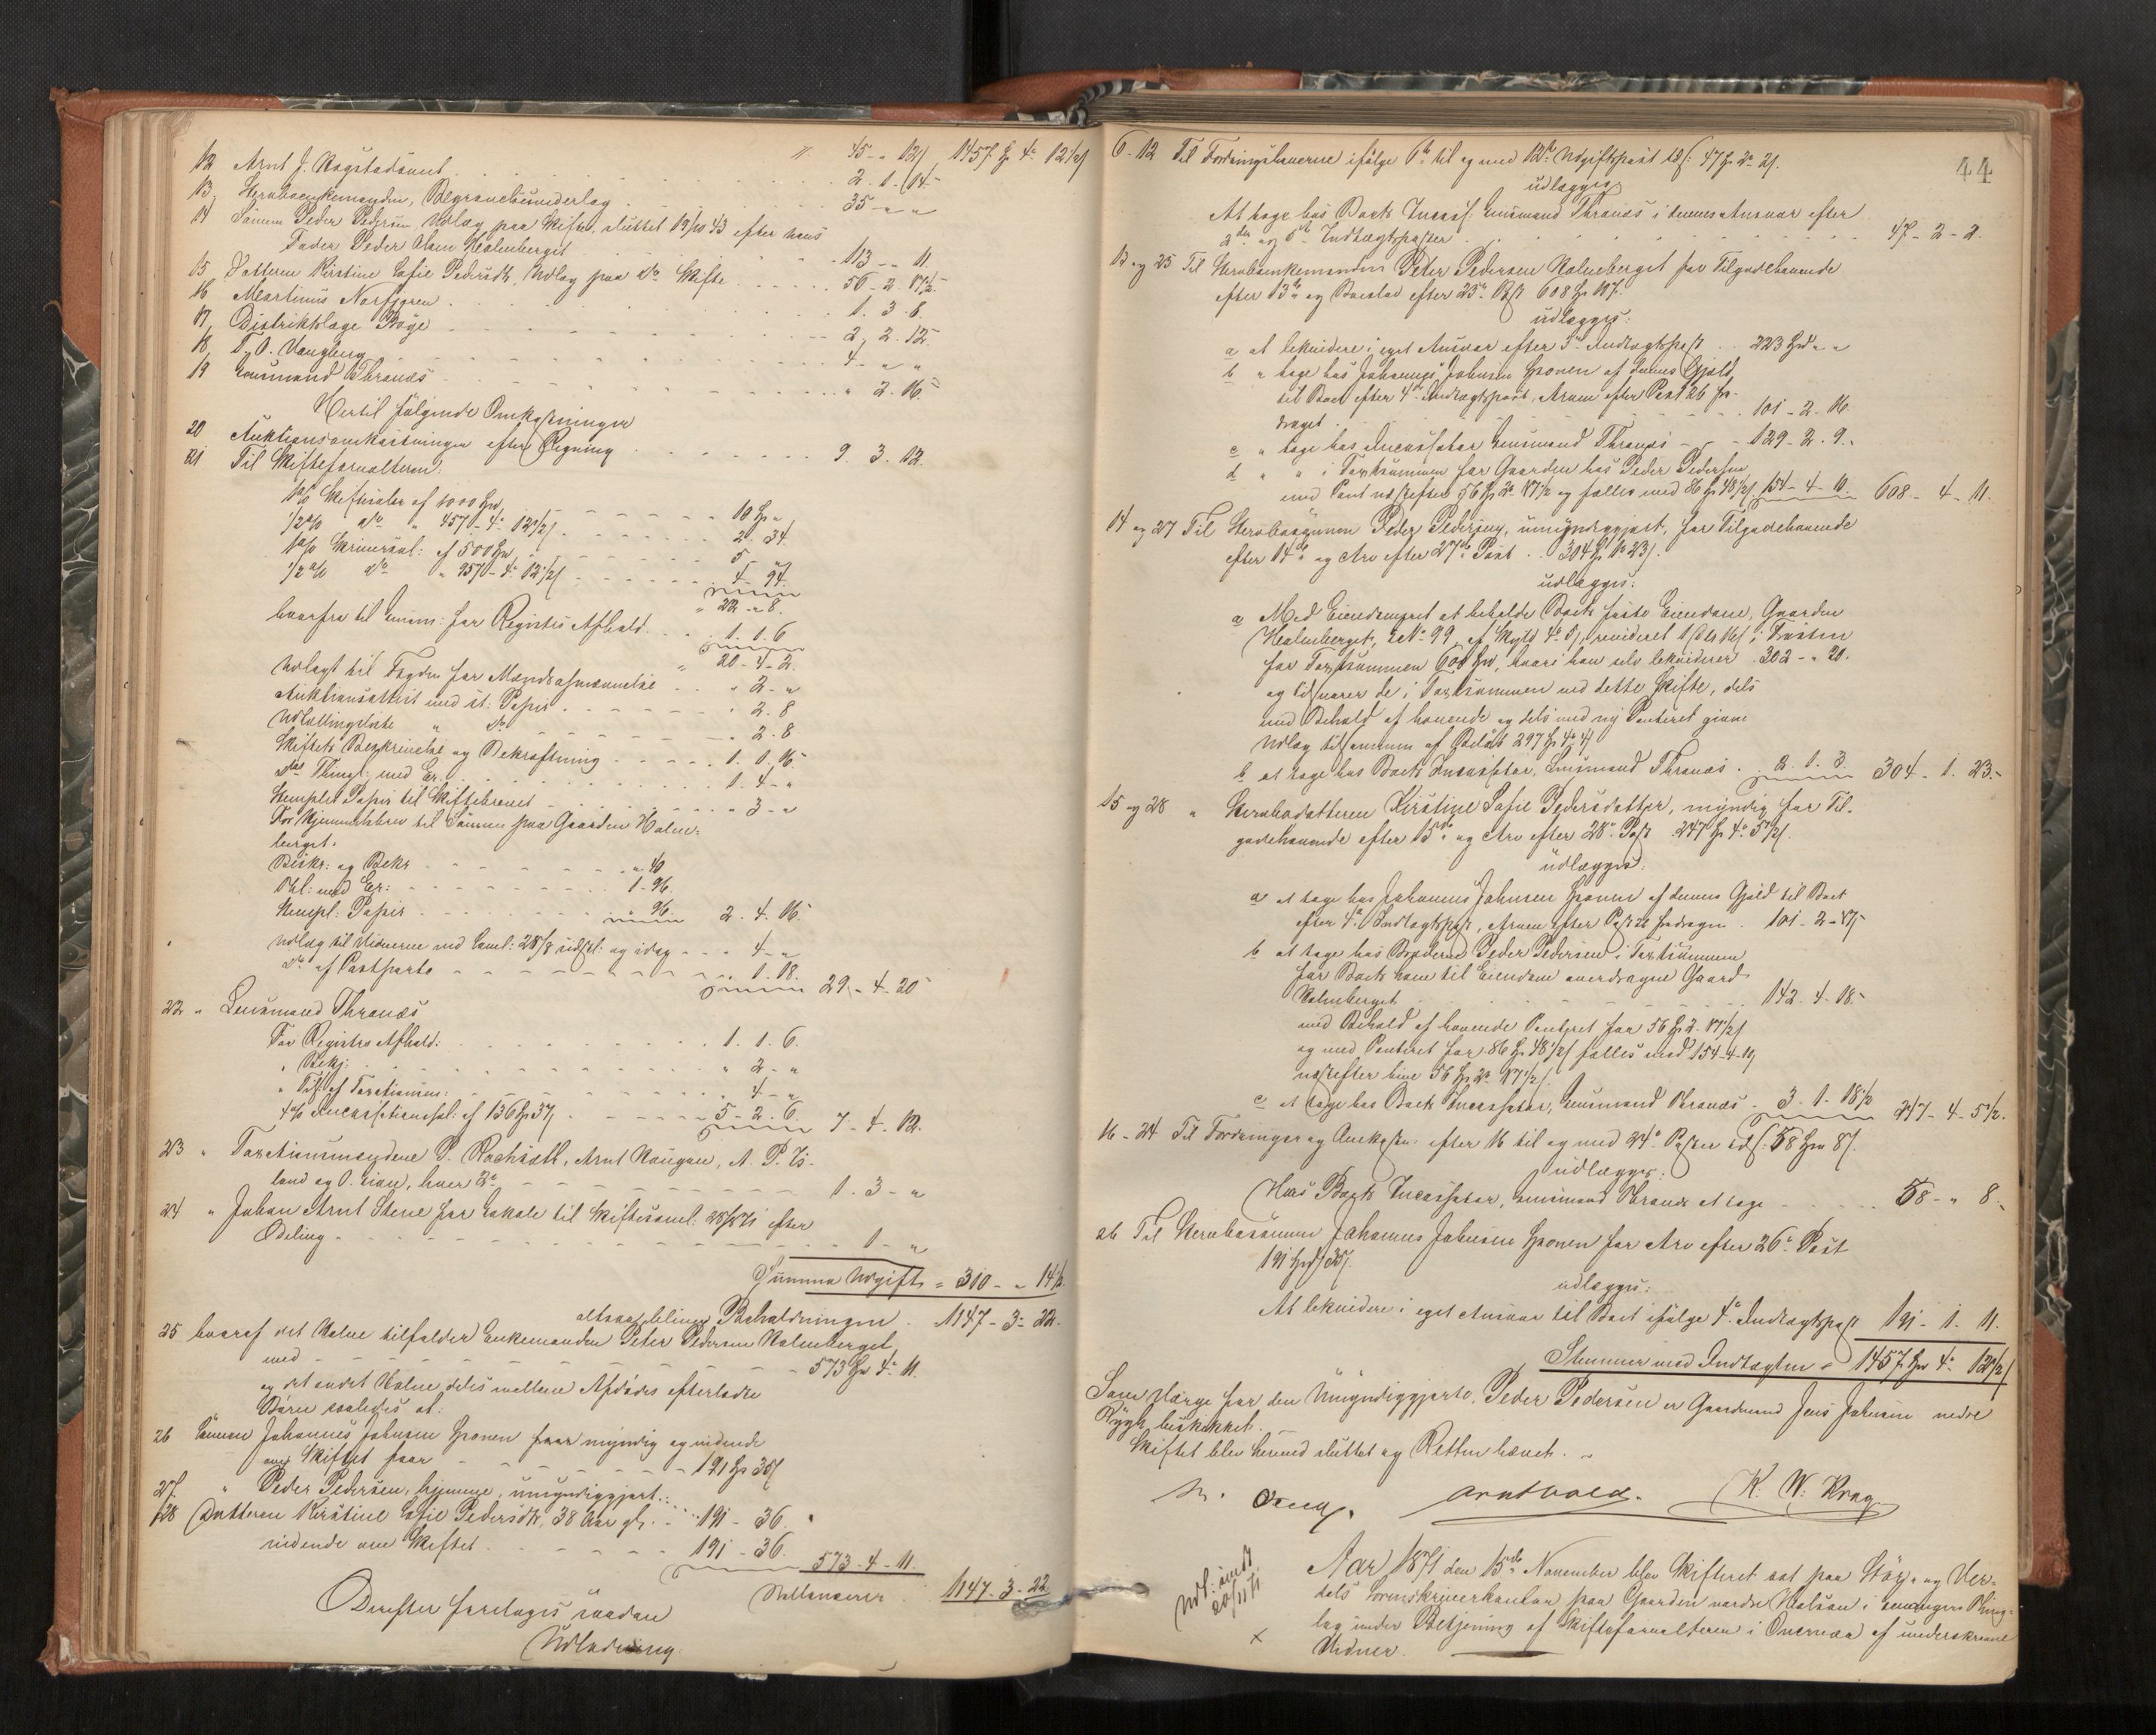 " 45 - " 12/ 1457 Spd 4 ort 12½/
12 Arnt J. Kogstadsunet . . . 2. 1. 14.
13, Stervboenkemanden, Begravelsesunderlag . . . 35 - " "
14 Sönnen Peder Pedersen, Udlæg paa Skifte, sluttet 19/10 43 efter hans
Fader Peder Olsen Halmberget . . . 113 - " 11.
15 Datteren Kirstine Sofie Pedersdtr, Udlæg paa do Skifte . . . 56 - 2. 17½.
16 Martinus Norfjgren . . . 1. 3. 8.
17, Distriktslæge Böye . . . 2, 2. 12.
18, T. O. Vangberg . . . 4 - " "
19 Lensmand Thranæs . . . " 2. 16.
Hertil følgende Omkostninger
20 Auktionsomkostninger efter Regning . . . 9. 3. 12.
21 Til Skifteforvalteren:
1 o/o Skiftesalær af 1000 Spd . . . 10 Spd "
1/2 o/o do " 457 - 4. 12½/ . . . 2. 34
1 o/o Skriversal: af 500 Spd . . . 5 "
1/2 o/o do " 957 - 4. 12½/ . . . 4. 94.
" 22 - " 8.
hvorfra til Lensm: for Registr: Afhold . . . 1. 1. 6
" 20 - 4 - 2.
Udlagt til Fogden for Mændsopnævnelse . . . " 2 - "
Auktionsattest med st: Papir . . . " 2. 8
Udlodningsliste " do . . . " 2. 8
Skiftets Beskrivelse og Bekræftning . . . 1. 1. 16.
dets Thingl: med Er. . . . 1. 4 - "
Stemplet Papir til Skiftebrevet . . . " 3 - "
For Hjemmelsbrev til Sönnen paa Gaarden Halm-
berget.
Beskr: og Bekr . . . " 40
Thl: med Er: . . . 1 - 96.
Stempl: Papir . . . " 96. 2. 4. 16.
Udlæg til Vidnerne ved Saml: 28/8 udsat: og idag . . . 4 - "
do af Postporto . . . 1. 18. 29 - 4 - 20
22 " Lensmand Thranæs
For Registr: Afhold: . . . 1. 1. 6.
" Bekj: . . . " 2 - "
" Tils: af Taxationen: . . . " 4 - "
4 o/o Incassationssal: af 136 Spd 37/ . . . 5 - 2. 6. 7 - 4. 12.
23 " Taxationsmændene P. Rochsæth, Arnt Haugan, A. P. Ys-
land og O. Lian, hver 2 ort . . . 1. 3 - "
24 " Johan Arnt Stene for Lokale til Skiftesaml: 28/8 71 efter
Ödeling . . . 1 - "
Summa Udgift = 310 - " 14½
altsaa bliver Beholdningen . 1147 - 3 - 22.
25 hvoraf det Halve tilfalder Enkemanden Peter Pedersen Halmberget
med . . . 573 Spd 4 ort 11.
og det andet Halve deles mellem Afdødes efterladte
Börn saaledes at:
26 Sönnen Johannes Johnsen Gronen myndig og vidende
om Skiftet faar . . . 191 Spd 36/
27. " Peder Pedersen, hjemme, umyndiggjort . . . 191 - 36.
28 Datteren Kirstine Sofie Pedersdtr, 38 Aar gl.
vidende om Skiftet . . . 191 - 36. 573 - 4 - 11.
Ballancerer 1147 - 3 - 22
Derefter foretoges saadan
Udlodning.
44
6 - 12 Til Fordringshaverne ifølge 6te til og med 12te Udgiftspost tils: 47 Spd 2 ort 2/.
udlægges
At tage hos Boets Incass: Lensmand Thranæs i dennes Ansvar efter
2den og 6te Indtægtsposter . . . 47 - 2 - 2.
13 og 25 Til Stervboenkemanden Peter Pedersen Halmberget for Tilgodehavende
efter 13de og Boeslod efter 25de Post 608 Spd 107.
udlægges:
a at likvidere i eget Ansvar efter 3de Indtægtspost . . 223 Spd " "
b " tage hos Johannes Johnsen Gronen af dennes Gjæld
til Boet efter 4de Indtægtspost, Arven efter Post 26 fra-
draget . . . 101 - 2 - 16.
c " tage hos Incassator Lensmand Thranæs - " - 129 - 2. 9.
d " " i Taxtsummen for Gaarden hos Peder Pedersen
med Pant næstefter 56 Spd 2 ort 17½ og fælles med 86 Spd 48½/ 154 - 4 - 10. 608 - 4 - 11.
14 og 27 Til Stervbosönnen Peder Pedersen, umyndiggjort, for Tilgodehavende
efter 14de og Arv efter 27de Post . . 304 Spd 1 ort 23/.
udlægges:
a Med Eiendomsret at beholde Boets faste Eiendom, Gaarden
Halmberget, LNo 99, af Skyld 4 ort 5/, revideret 1 Spd 16/ i Frosten
for Taxtsummen 600 Spd, hvori han selv likviderer 302 - " 20.
og tilsvarer de i Taxtsummen ved dette Skifte, dels
med Behold af havende og dels med ny Panteret givne
Udlæg tilsammen af Beløb 297 Spd 4 ort 4/
b at tage hos Boets Incassator, Lensmand Thranæs . . 2. 1. 3. 304 - 1. 23.-
15 og 28 " Stervbodatteren Kirstine Sofie Pedersdatter, myndig for Til-
godehavende efter 15de og Arv efter 28de Post 247 Spd 4 ort 5½/.
udlægges:
a at tage hos Johannes Johnsen Gronen af dennes Gjæld til Boet
efter 4de Indtægtspost, Arven efter Post 26 fradragen . 101 - 2 - 17/
b at tage hos Broderen Peder Pedersen i Taxtsummen
for Boets ham til Eiendom overdragne Gaard
Halmberget . . . 142. 4. 18.
med Behold af havende Panteret for 56 Spd 2. 17½/
og med Panteret for 86 Spd 48½/ fælles med 154 - 4 - 10/
næstefter hine 56 Spd 2 ort 17½/.
c at tage hos Boets Incassator, Lensmand Thranæs . 3. 1. 18½ 247 - 4 - 5½.
16 - 24 Til Fordringer og Omkostn: efter 16 til og med 24de Poster tils: 58 Spd 8/.
udlægges:
Hos Boets Incassator, Lensmand Thranæs at tage . . . 58 - " 8.
26 Til Stervbosönnen Johannes Johnsen Gronen for Arv efter 26de Post
191 Spd 35/.
udlægges:
At likvidere i eget Ansvar til Boet ifølge 4de Indtægtspost 191 - 1. 11.
Stemmer med Indtægten = 1457 Spd 4 ort 12½/
Som Værge for den Umyndiggjorte, Peder Pedersen er Gaardmand Jens Johnsen nedre
Rygh beskikket.
Skiftet blev hermed sluttet og Retten hævet. -
Arntvold. K. W. Krag
Aar 1871 den 15de November blev Skifteret sat paa Stör- og Ver-
dals Sorenskriverkontor paa Gaarden nordre Halsan i Thing-
lag under Betjening af Skifteforvalteren i Overvær af underskrevne
Vidner.
Udl: sendt
20/11 71
x